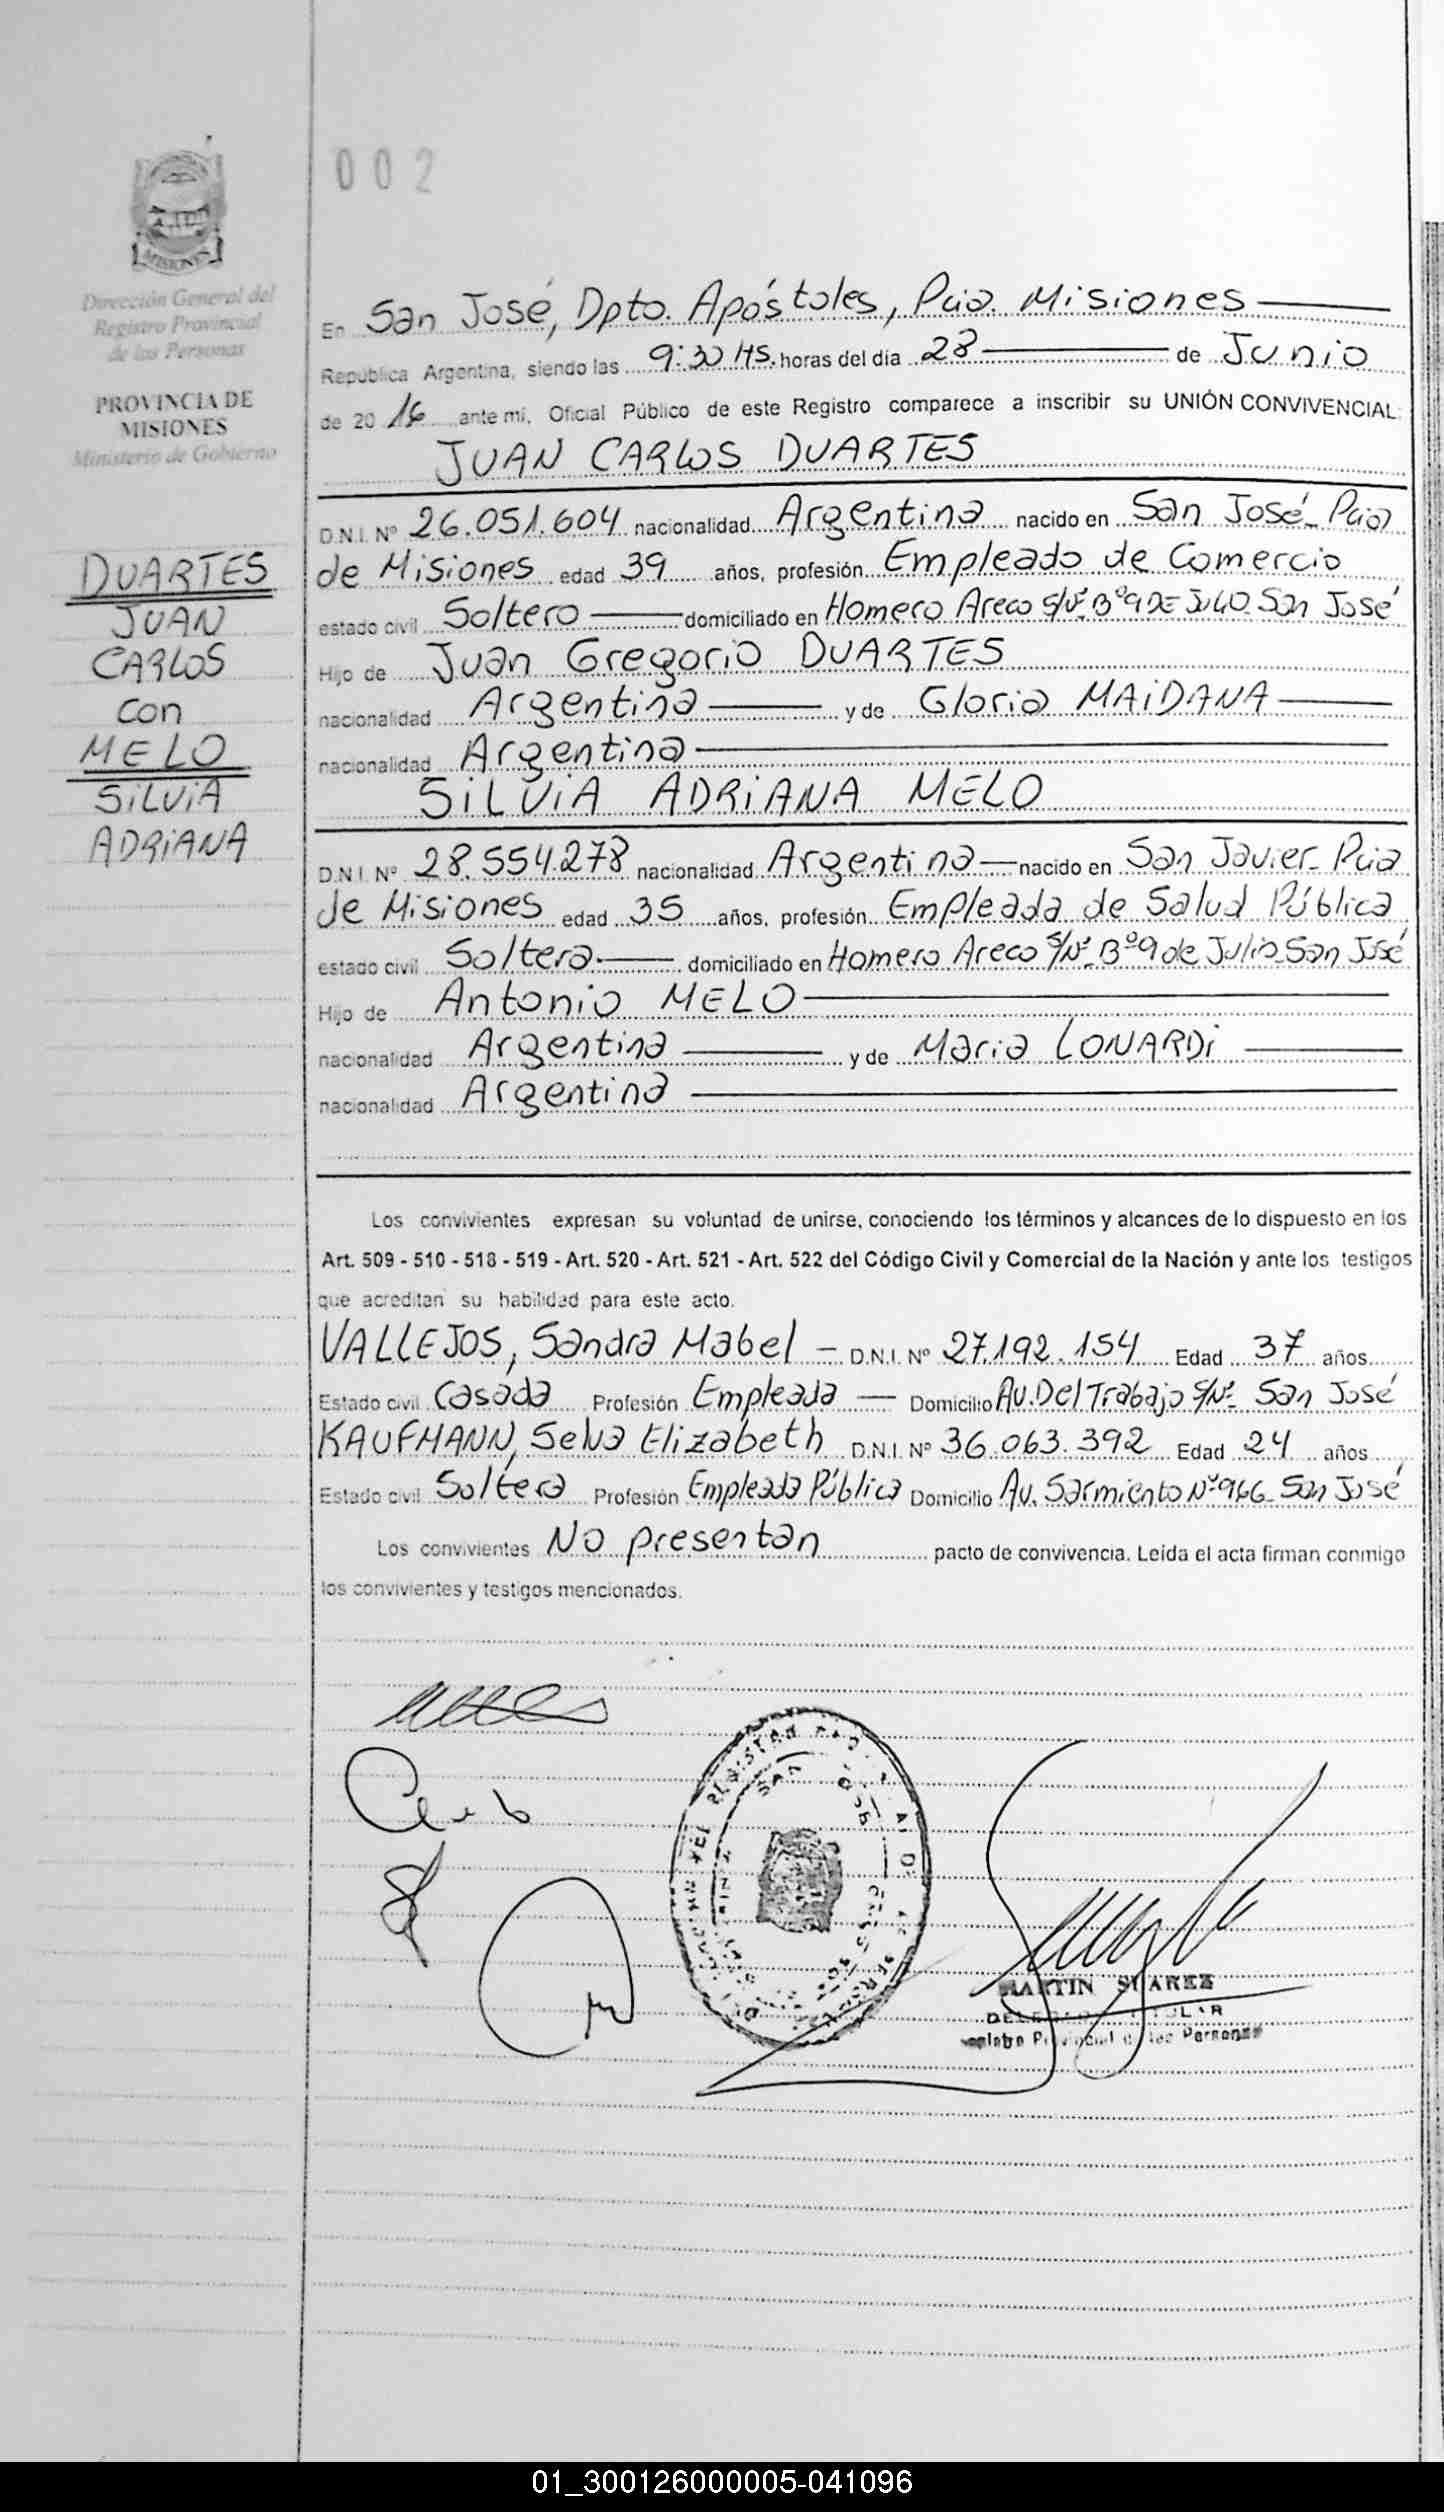 002
MISIONES
Dirección General del
Registro Provincial
de las Personas
PROVINCIA DE
MISIONES
Ministerio de Gobierno
DUARTES
JUAN
CARLOS
con
MELO
SILVIA
ADRIANA
En San José, Dpto. Apóstoles, Pcia. Misiones
República Argentina, siendo las 9:30 HS. horas del día 28 de Junio
de 2016 ante mi, Oficial Público de este Registro comparece a inscribir su UNIÓN CONVIVENCIAL:
JUAN CARLOS DUARTES
D.N.I. Nº 26.051.604 nacionalidad Argentina nacido en San José- Pcia
de Misiones edad 39 años, profesión Empleado de Comercio
estado civil Soltero domiciliado en Homero Areco S/Nº. Bº 9 DE JULIO. San José
Hijo de Juan Gregorio DUARTES
nacionalidad Argentina y de Gloria MAIDANA
nacionalidad Argentina
SILVIA ADRIANA MELO
D.N.I. Nº 28.554.278 nacionalidad Argentina nacido en San Javier- Pcia
de Misiones edad 35 años, profesión Empleada de Salud Pública
estado civil Soltera domiciliado en Homero Areco S/Nº- Bº 9 de Julio- San José
Hijo de Antonio MELO
nacionalidad Argentina y de Maria LONARDI
nacionalidad Argentina
Los convivientes expresan su voluntad de unirse, conociendo los términos y alcances de lo dispuesto en los
Art. 509 - 510 - 518 - 519 - Art. 520 - Art. 521 - Art. 522 del Código Civil y Comercial de la Nación y ante los testigos
que acreditan su habilidad para este acto.
VALLEJOS, Sandra Mabel - D.N.I. Nº 27.192.154 Edad 37 años
Estado civil Casada Profesión Empleada Domicilio Av. Del Trabajo S/Nº- San José
KAUFMANN, Selva Elizabeth D.N.I. Nº 36.063.392 Edad 24 años
Estado civil Soltera Profesión Empleada Pública Domicilio Av. Sarmiento Nº 966- San José
Los convivientes No presentan pacto de convivencia. Leída el acta firman conmigo
los convivientes y testigos mencionados.
SAN JOSE
MARTIN SUAREZ
01_300126000005-041096